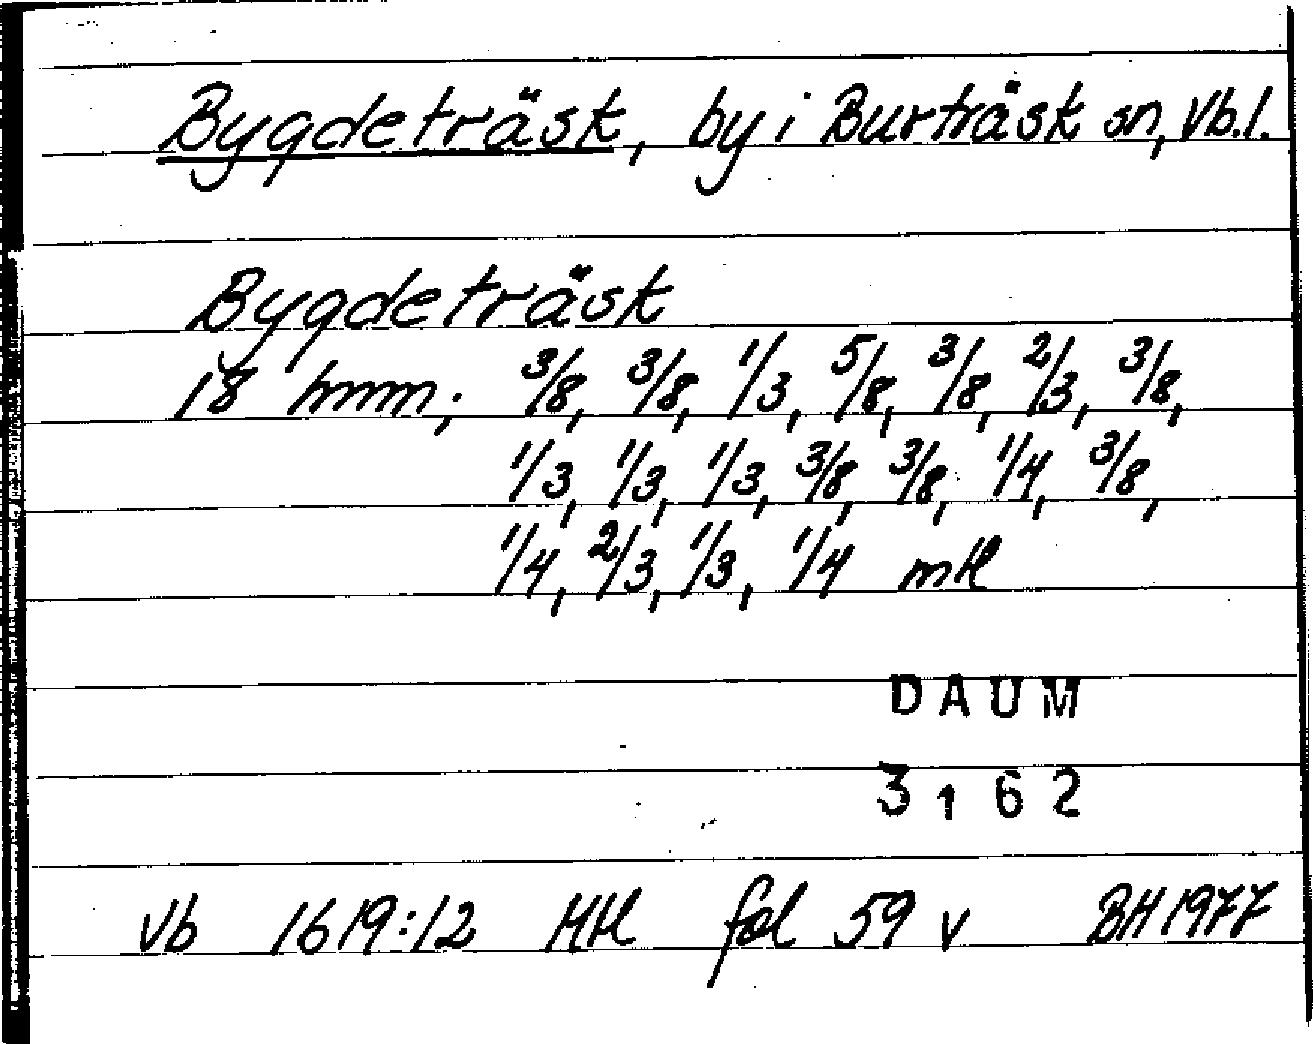 Bygdeträsk, by i Burträsk sn, Vb.l.
Bygdeträsk
18 hmm; 3/8, 3/8, 1/3, 5/8, 3/8, 2/3, 3/8,
1/3, 1/3, 1/3, 3/8, 3/8, 1/4, 3/8,
1/4, 2/3, 1/3, 1/4 mtl
DAUM
3162
Vb 1619:12 Mtl fol 59 v BH 1977